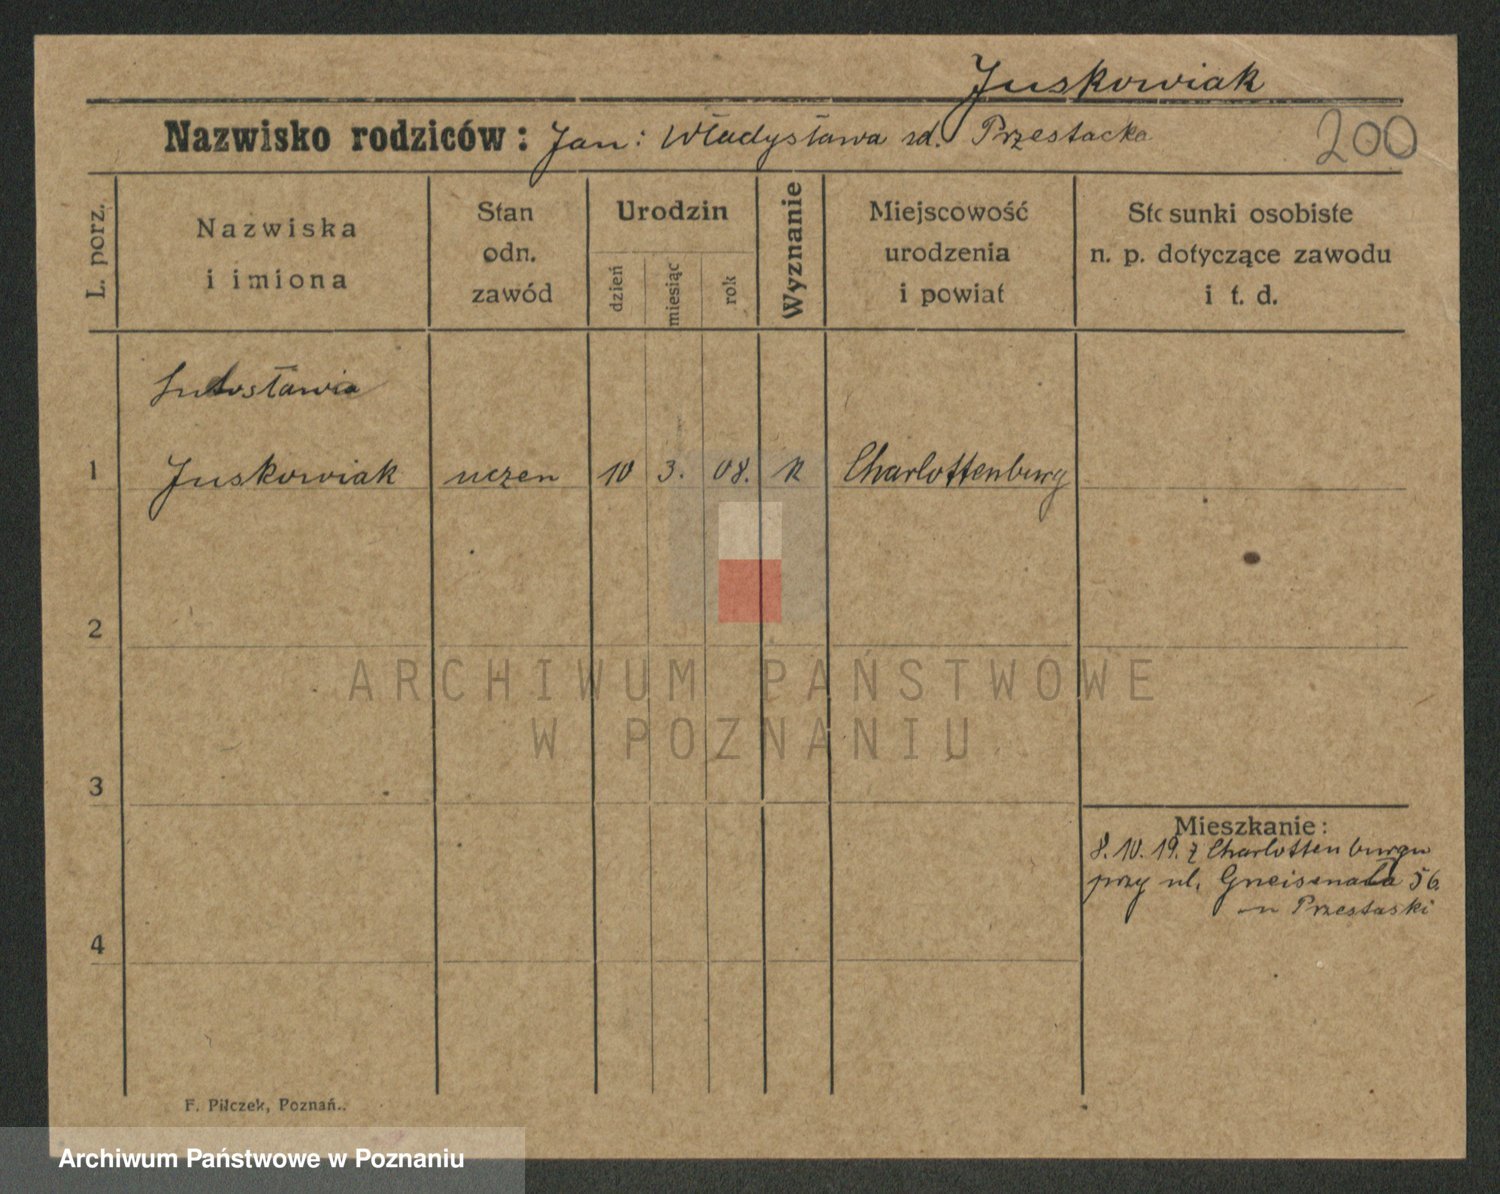 Juskowiak
Nazwisko rodziców: Jan: Władysława rd. Przestacka
200
L. porz.
Nazwiska
i imiona
Stan
odn.
zawód
Urodzin
dzień
miesiąc
rok
Wyznanie
Miejscowość
urodzenia
i powiat
Stosunki osobiste
n. p. dotyczące zawodu
i t. d.
1
Juskowiak uczen 10 3. 08. k Charlottenburg
2
3
4
Mieszkanie:
8. 10. 19. z Charlottenburgu
przy ul. Gneisenała 56.
Przestaski
F. Pilczek, Poznań.
ARCHIWUM PAŃSTWOWE
W POZNANIU
Archiwum Państwowe w Poznaniu